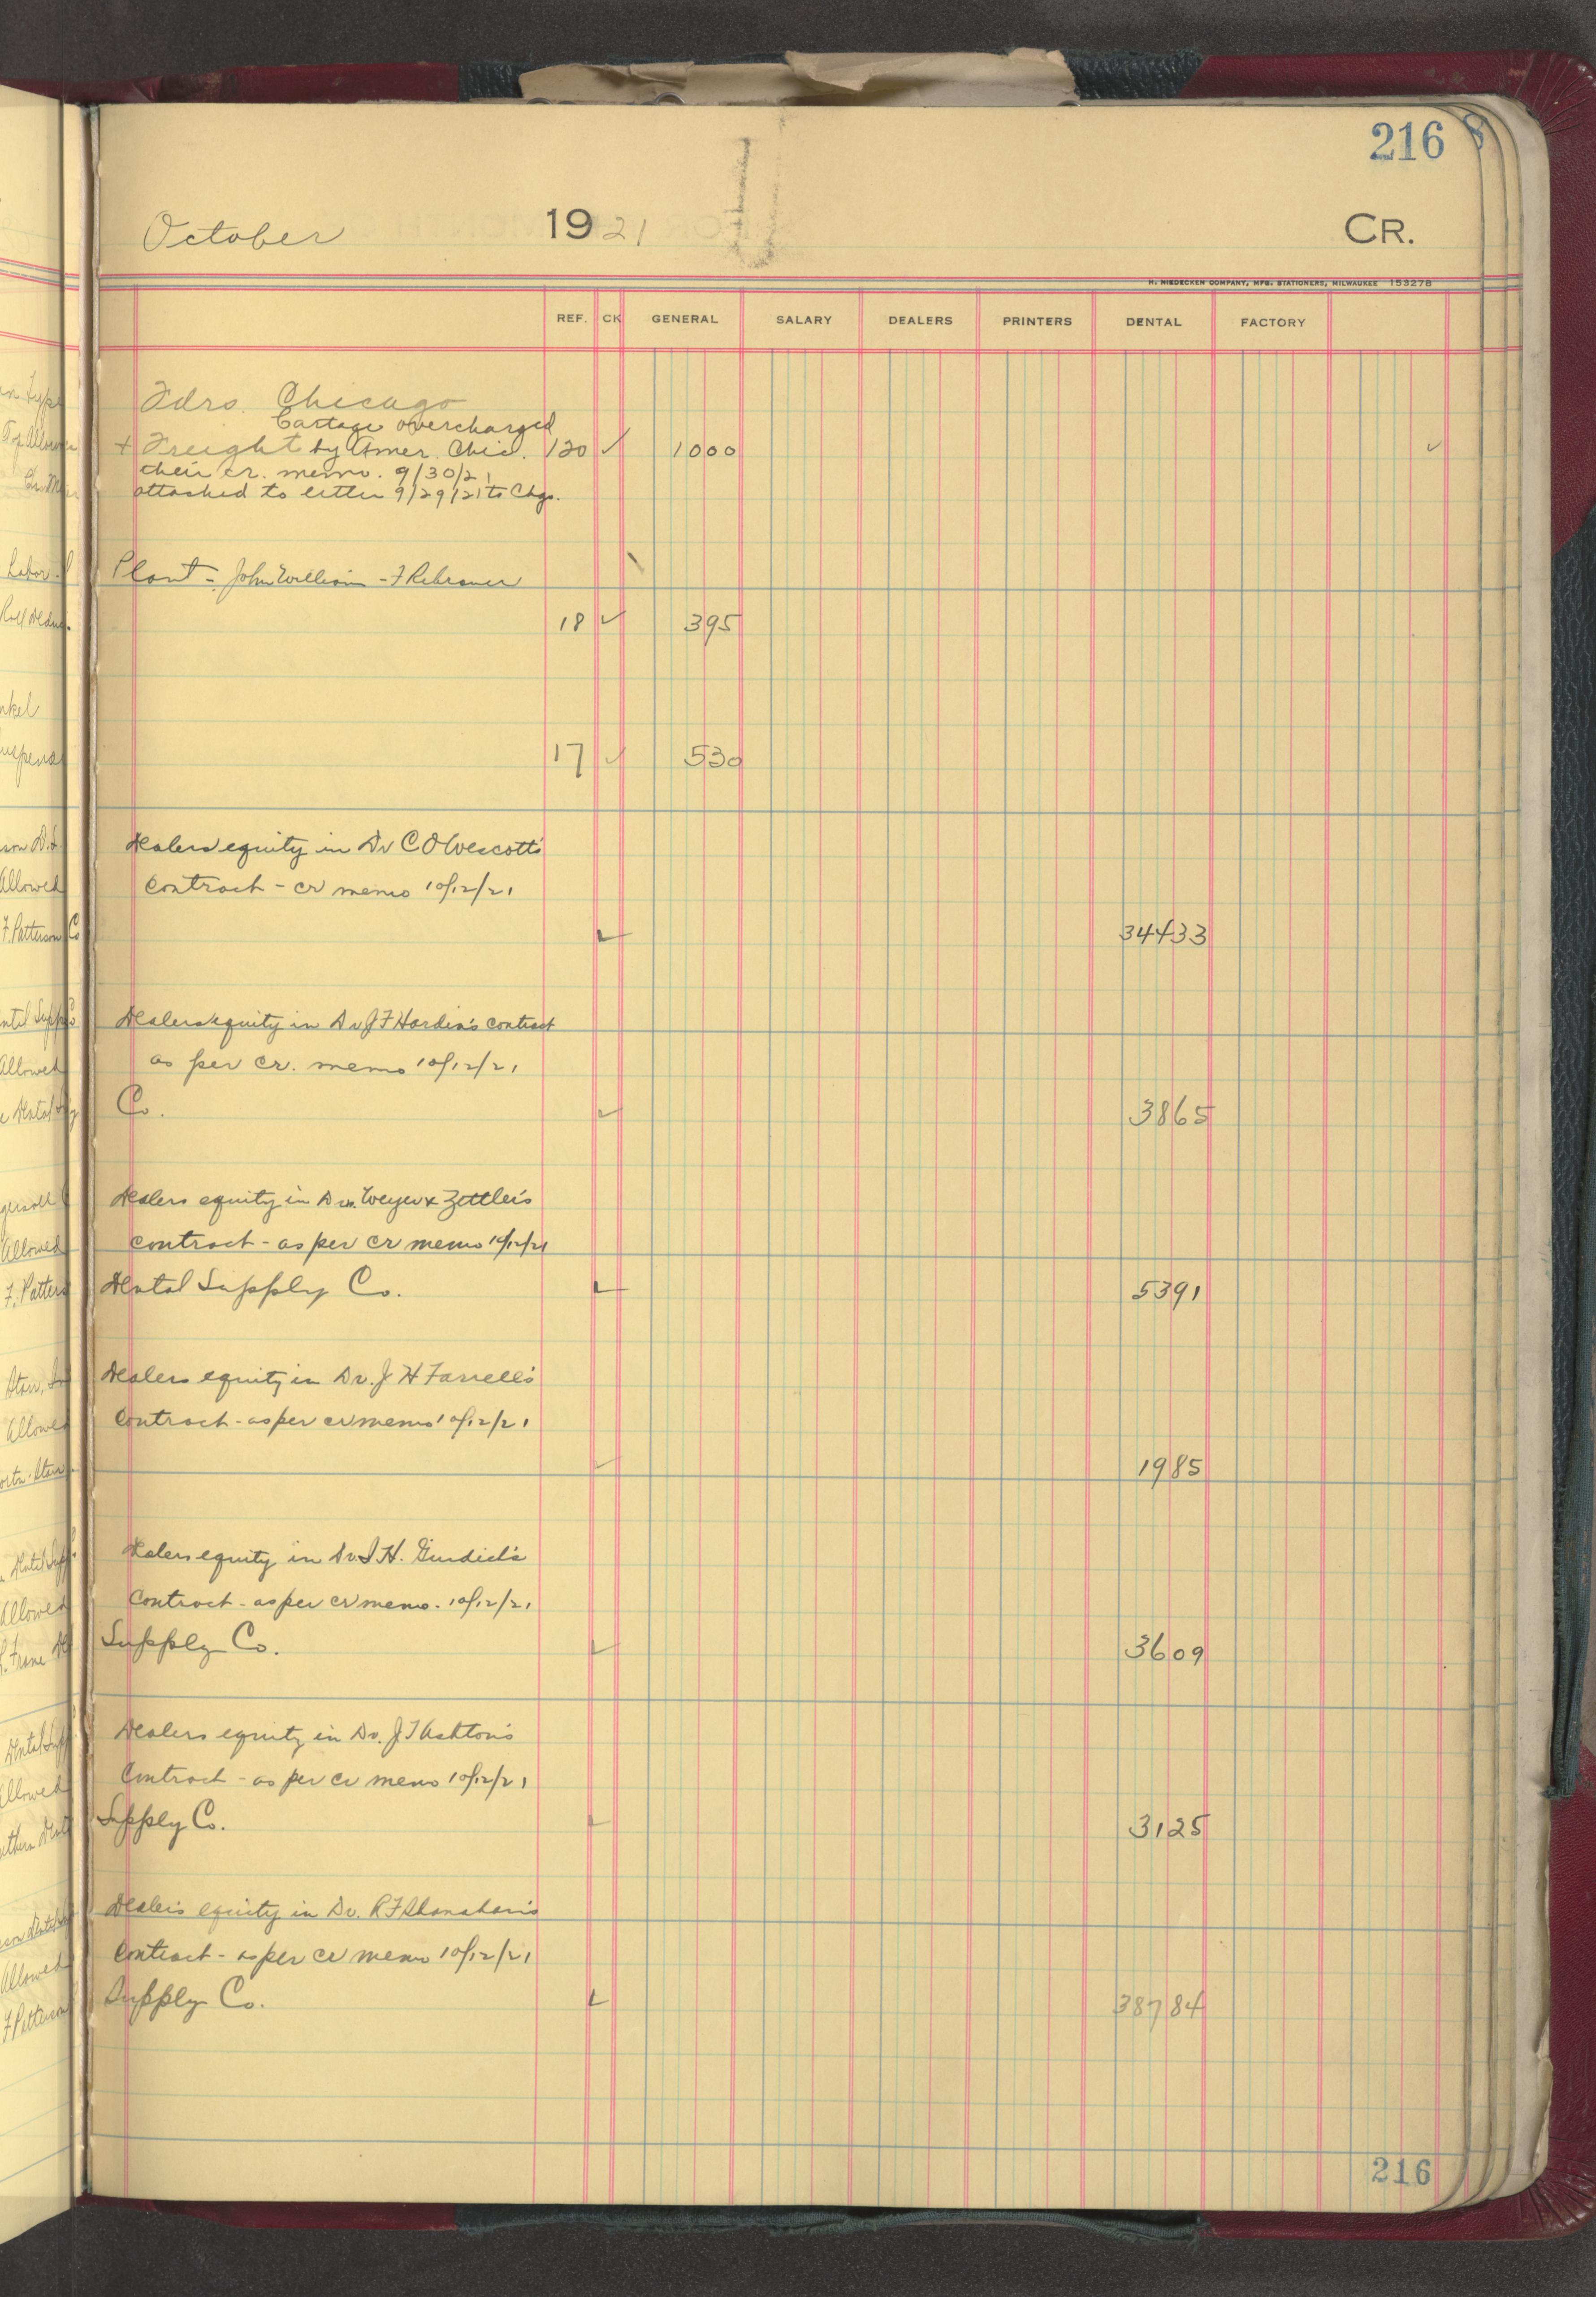 216
October 1921 CR.
H. NIEDECKEN COMPANY, MFG. STATIONERS, MILWAUKEE 153278
REF. CK GENERAL SALARY DEALERS PRINTERS DENTAL FACTORY
Fdrs. Chicago
Cartage overcharged
+ Freight by Amer. Chic. 120 ✓ 1000 ✓
their cr. memo. 9/30/21
attached to letter 9/29/21 to Chgo.
Plant - John William - F
18 ✓ 395
17 ✓ 530
Dealers equity in Dr C O Wescott's
contract - cr memo 10/12/21
✓ 34433
Dealers equity in Dr J F Hardin's contract
as per cr. memo 10/12/21
Co. ✓ 3865
Dealers equity in Drs. Weyer & Zettler's
contract - as per cr memo 10/12/21
Dental Supply Co. ✓ 5391
Dealers equity in Dr. J H Farrell's
contract - as per cr memo 10/12/21
✓ 1985
Dealers equity in Dr. I H.
contract - as per cr memo. 10/12/21
Supply Co. ✓ 3609
Dealers equity in Dr. J T Ashton's
contract - as per cr memo 10/12/21
Supply Co. ✓ 3125
Dealers equity in Dr. R F Shanahan's
contract - as per cr memo 10/12/21
Supply Co. ✓ 38784
216